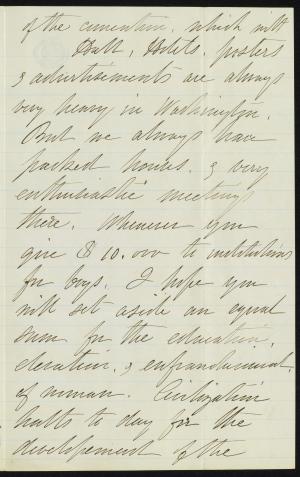 of the convention, which with
Hall, Hotels, posters
& advertisements are always
very heavy in Washington.
But we always have
packed houses, & very
enthusiastic meetings
there. Whenever you
give $10.000 to institutions
for boys. I hope you
will set aside an equal
sum for the education,
elevation, & enfranchisement,
of woman. Civilization
halts to day for the
developement of the